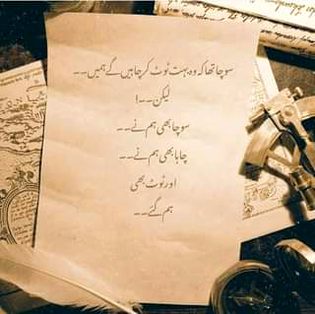 سوچا تھا کہ وہ بہت ٹوٹ کر چاہیں گے ہمیں۔۔
لیکن۔۔!
سوچا بھی ہم نے۔۔
چاہا بھی ہم نے۔۔
اور ٹوٹ بھی
ہم گئے۔۔